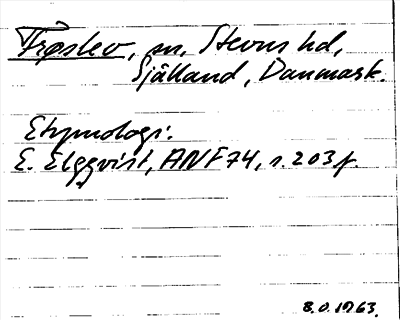 Frøslev, sn. Stevns hd,
Själland, Danmark.
Etymologi:
E. Elgqvist, ANF 74, s. 203 f.
B.O. 1963.